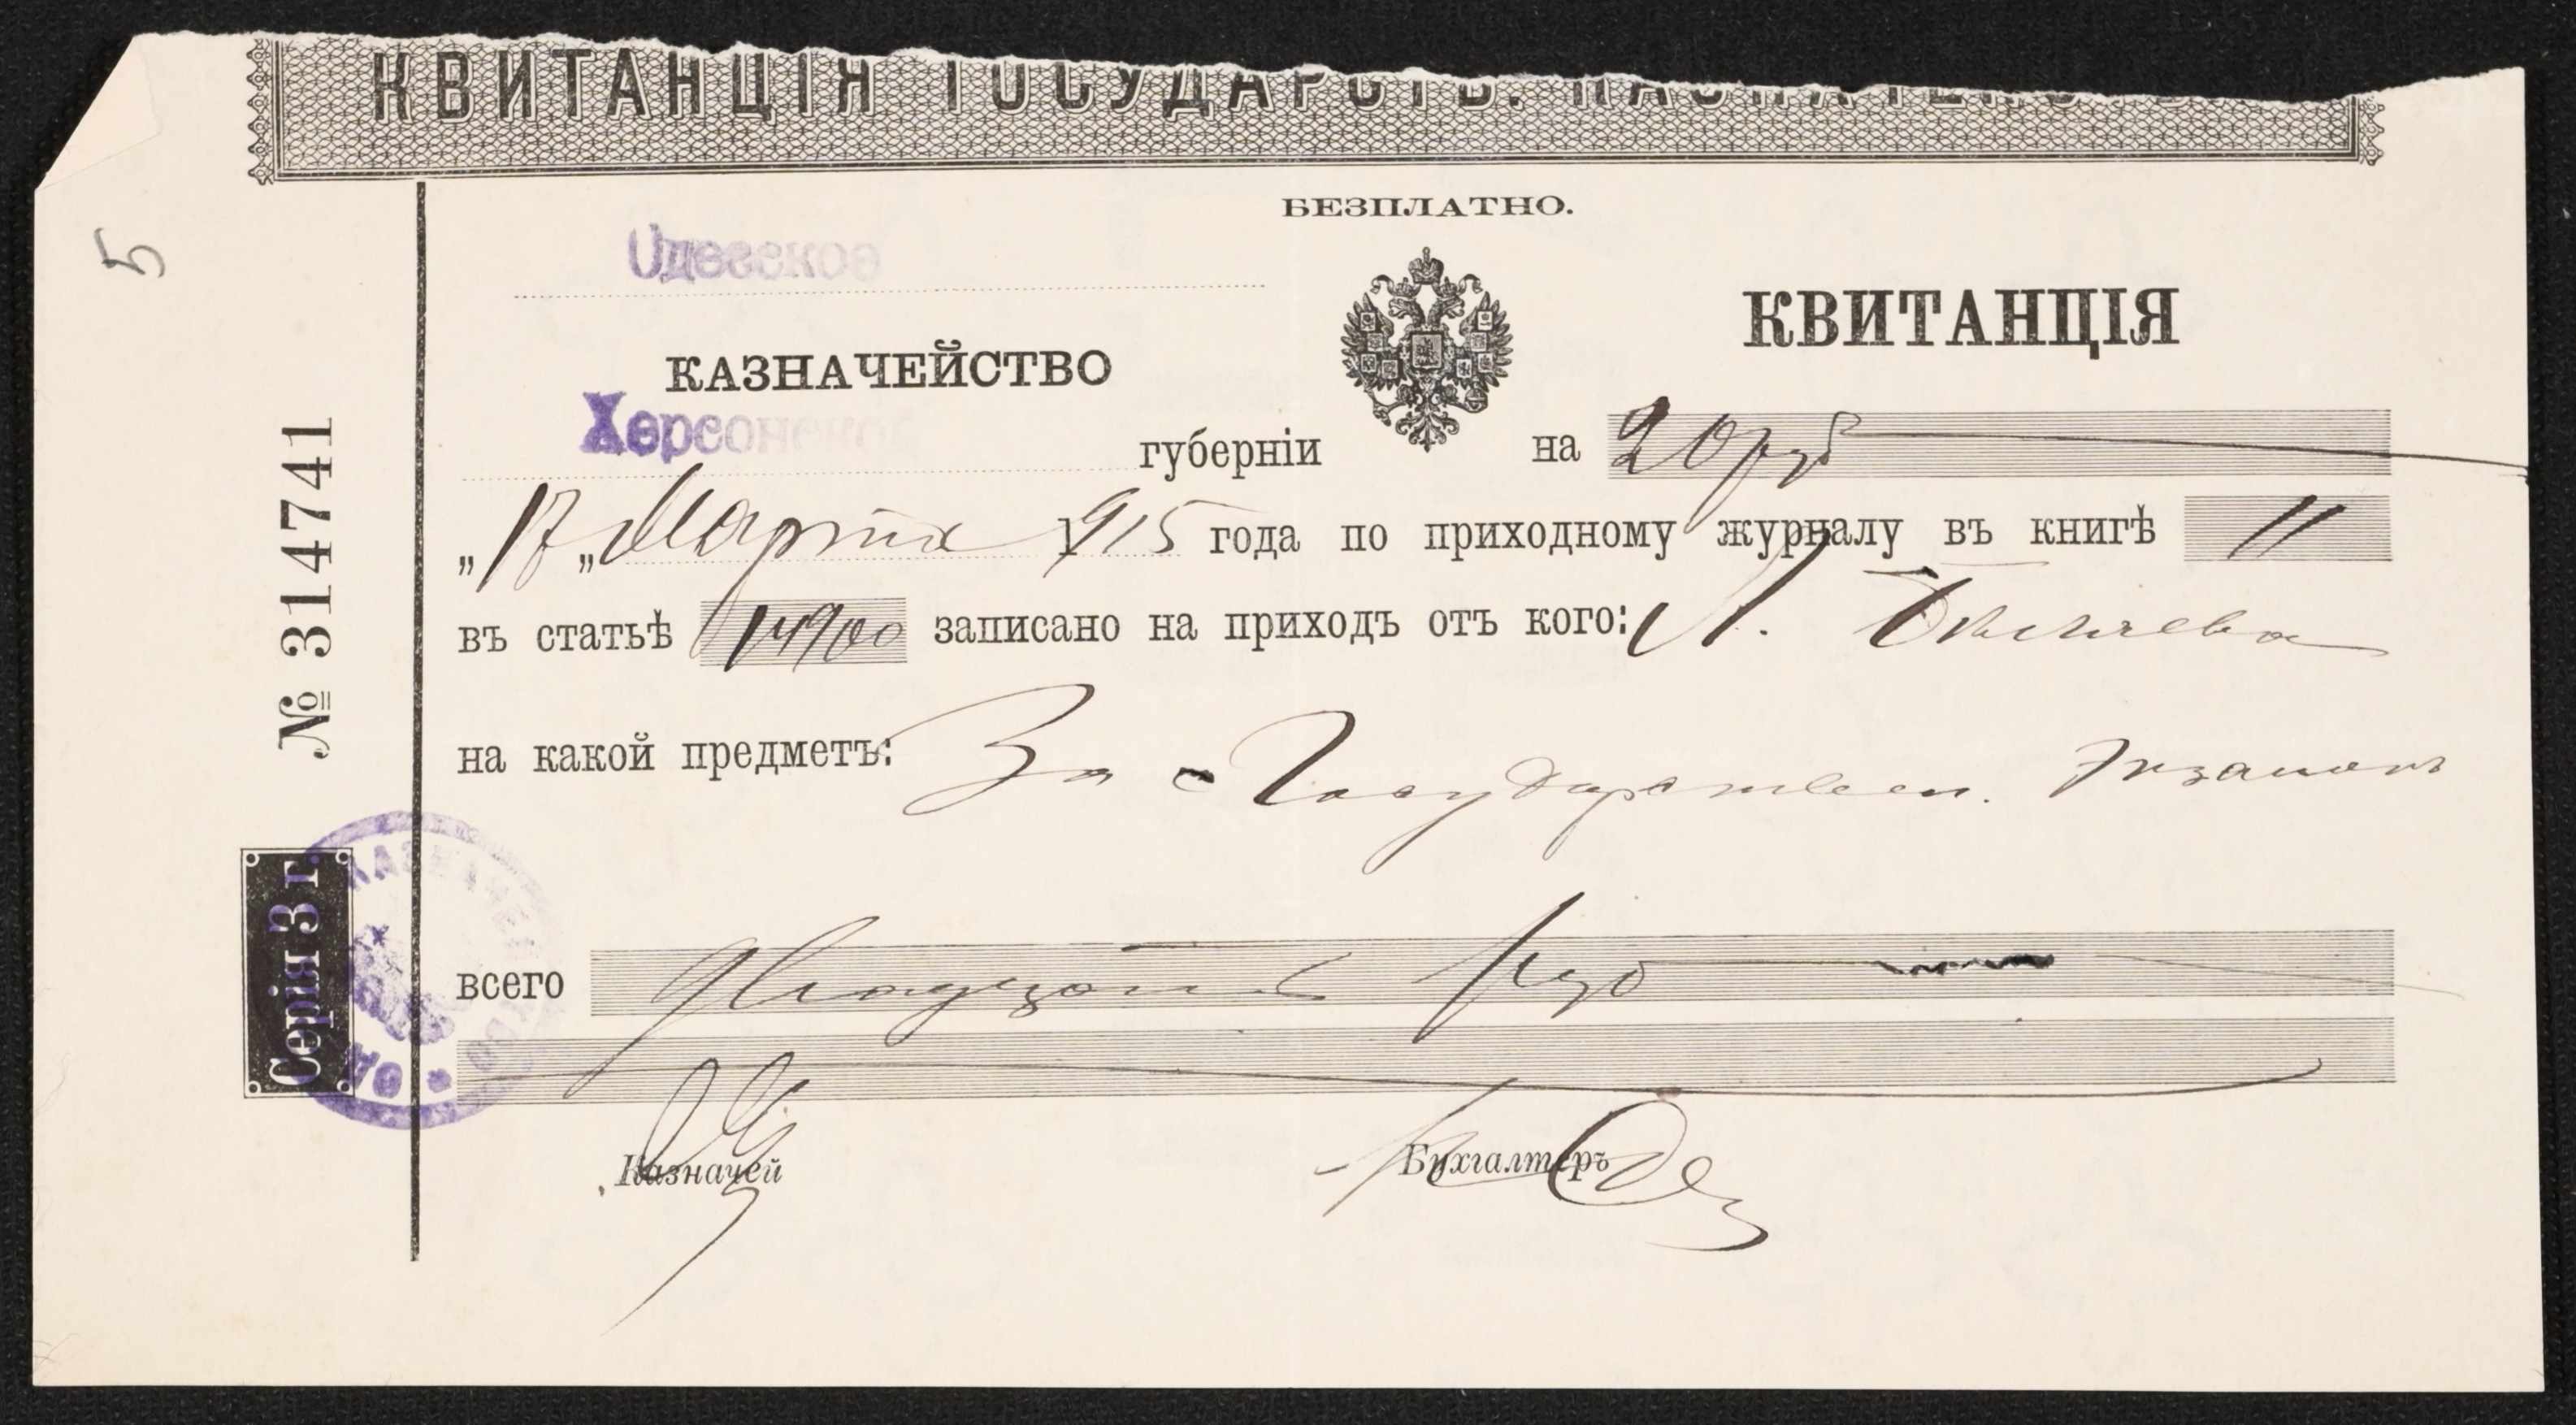 КВИТАНЦІЯ ГОСУДАРСТВ. КАЗНАЧЕЙСТВА
5
БЕЗПЛАТНО.
Одесское
КАЗНАЧЕЙСТВО
КВИТАНЦІЯ
Херсонской губерніи на 20 руб
„17„ Марта 1915 года по приходному журналу въ книгѣ 11
въ статьѣ 14900 записано на приходъ отъ кого: Л.
на какой предметъ: За Государствен. Экзаменъ
всего двадцать руб
Казначей Бухгалтеръ
№ 314741
Серія 3 г.
КАЗНАЧЕЙСТВО